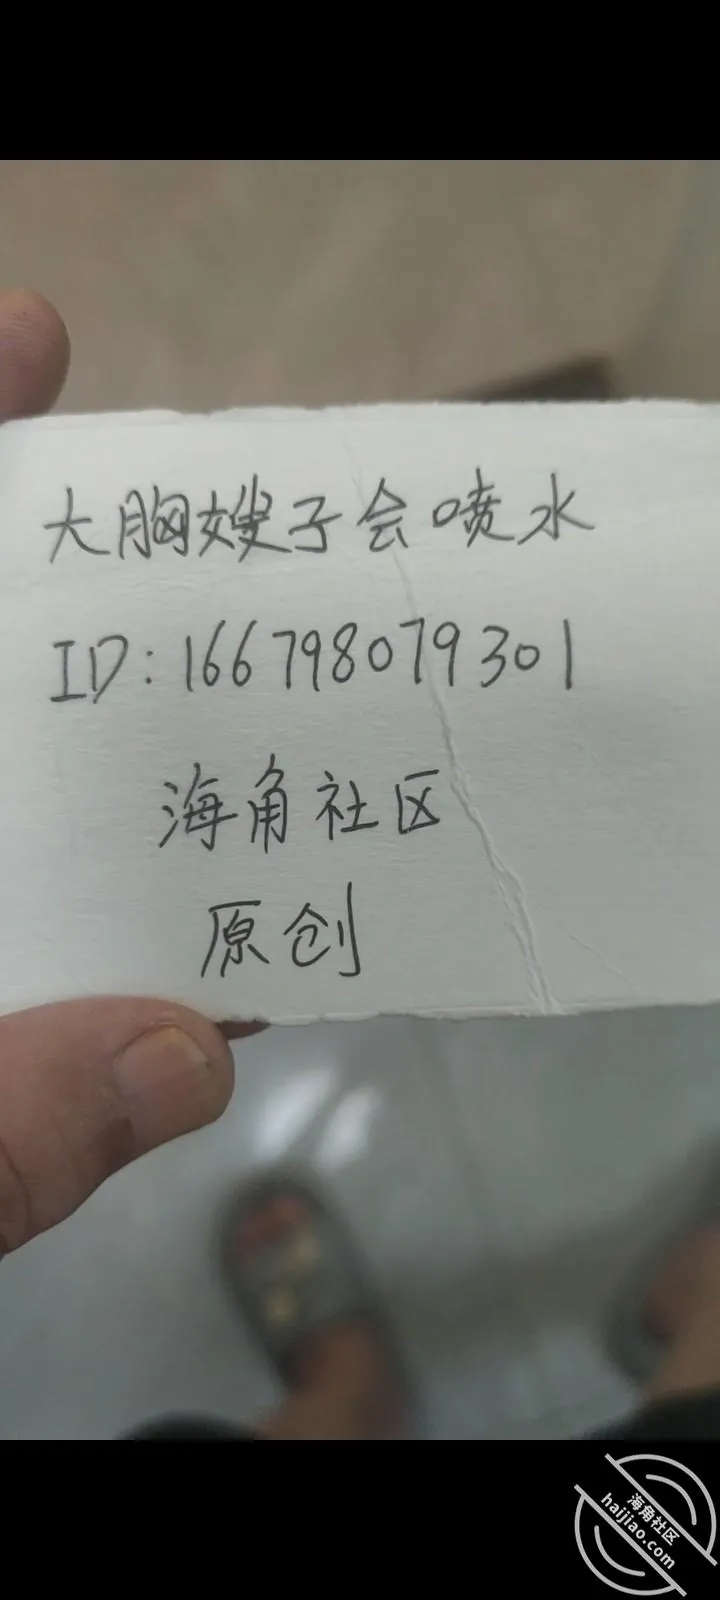 大胸嫂子会喷水
ID:166798079301
海角社区
原创
海角社区
haijiao.com